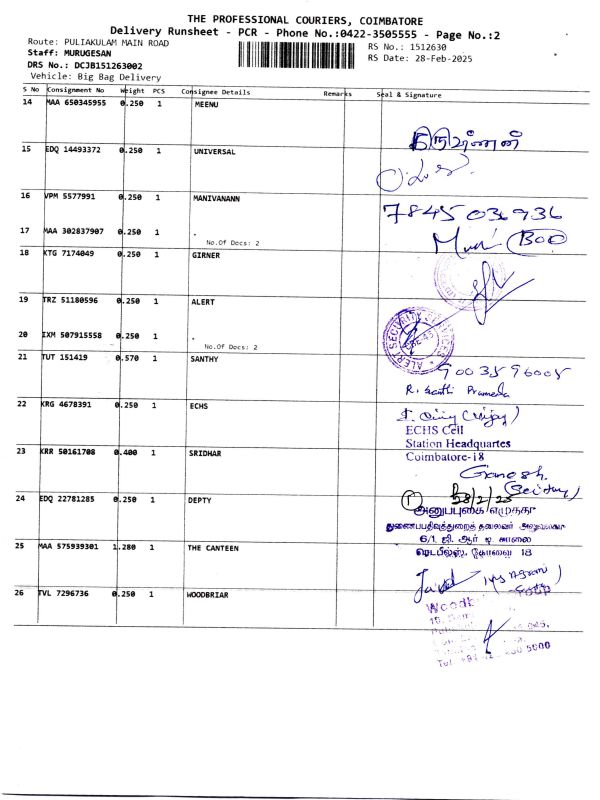 THE PROFESSIONAL COURIERS, COIMBATORE
Delivery Runsheet - PCR - Phone No.:0422-3505555 - Page No.:2
Route: PULIAKULAM MAIN ROAD
RS No.: 1512630
Staff: MURUGESAN
RS Date: 28-Feb-2025
DRS No.: DCJB151263002
Vehicle: Big Bag Delivery
S No Consignment No Weight PCS Consignee Details Remarks Seal & Signature
14 MAA 650345955 0.250 1 MEENU
15 EDQ 14493372 0.250 1 UNIVERSAL
16 VPM 5577991 0.250 1 MANIVANANN
7845036936
17 MAA 302837907 0.250 1 .
No.Of Docs: 2
18 KTG 7174049 0.250 1 GIRNER
19 TRZ 51180596 0.250 1 ALERT
ALERT SECURITY SERVICES
20 IXM 507915558 0.250 1 .
No.Of Docs: 2
21 TUT 151419 0.570 1 SANTHY
9003596005
R. Santhi Prameela
22 KRG 4678391 0.250 1 ECHS
ECHS Cell
Station Headquartes
Coimbatore-18
23 KRR 50161708 0.400 1 SRIDHAR
Ganesh.
24 EDQ 22781285 0.250 1 DEPTY
28/2/25
துணைபபதிவுத்துறைத் தலைவர்
6/1, ஜி. ஆர் டி காலை
25 MAA 575939301 1.280 1 THE CANTEEN
கோவை 18
26 TVL 7296736 0.250 1 WOODBRIAR